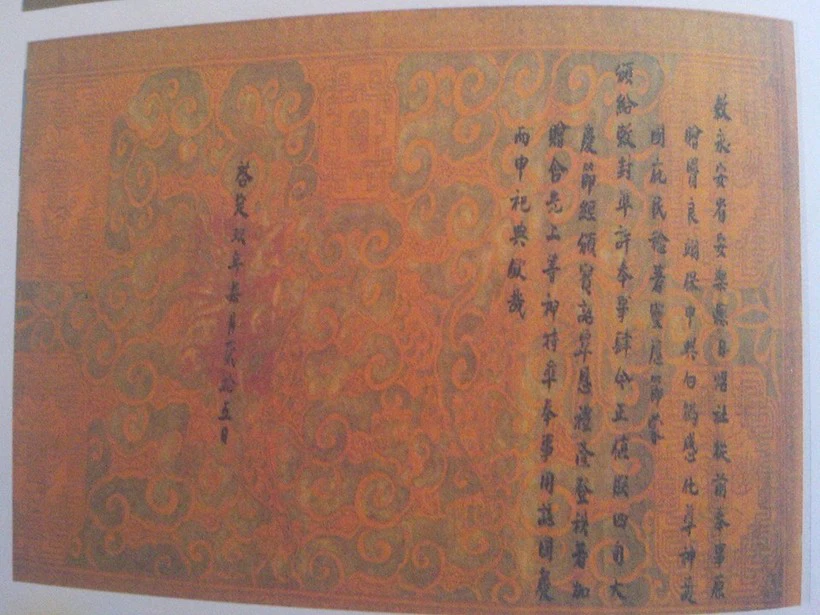 敕永安省安樂縣日社從前奉事原
贈賢良翊保中興白鶴感化尊神護
國庇民稔著靈應節蒙
頒給敕封準許奉事肆今正值朕四旬大
慶節經頒寶詔覃恩禮隆登秩著加
贈上等神特準奉事用誌國慶
而申祀典欽哉
啓定玖年柒月貳拾五日